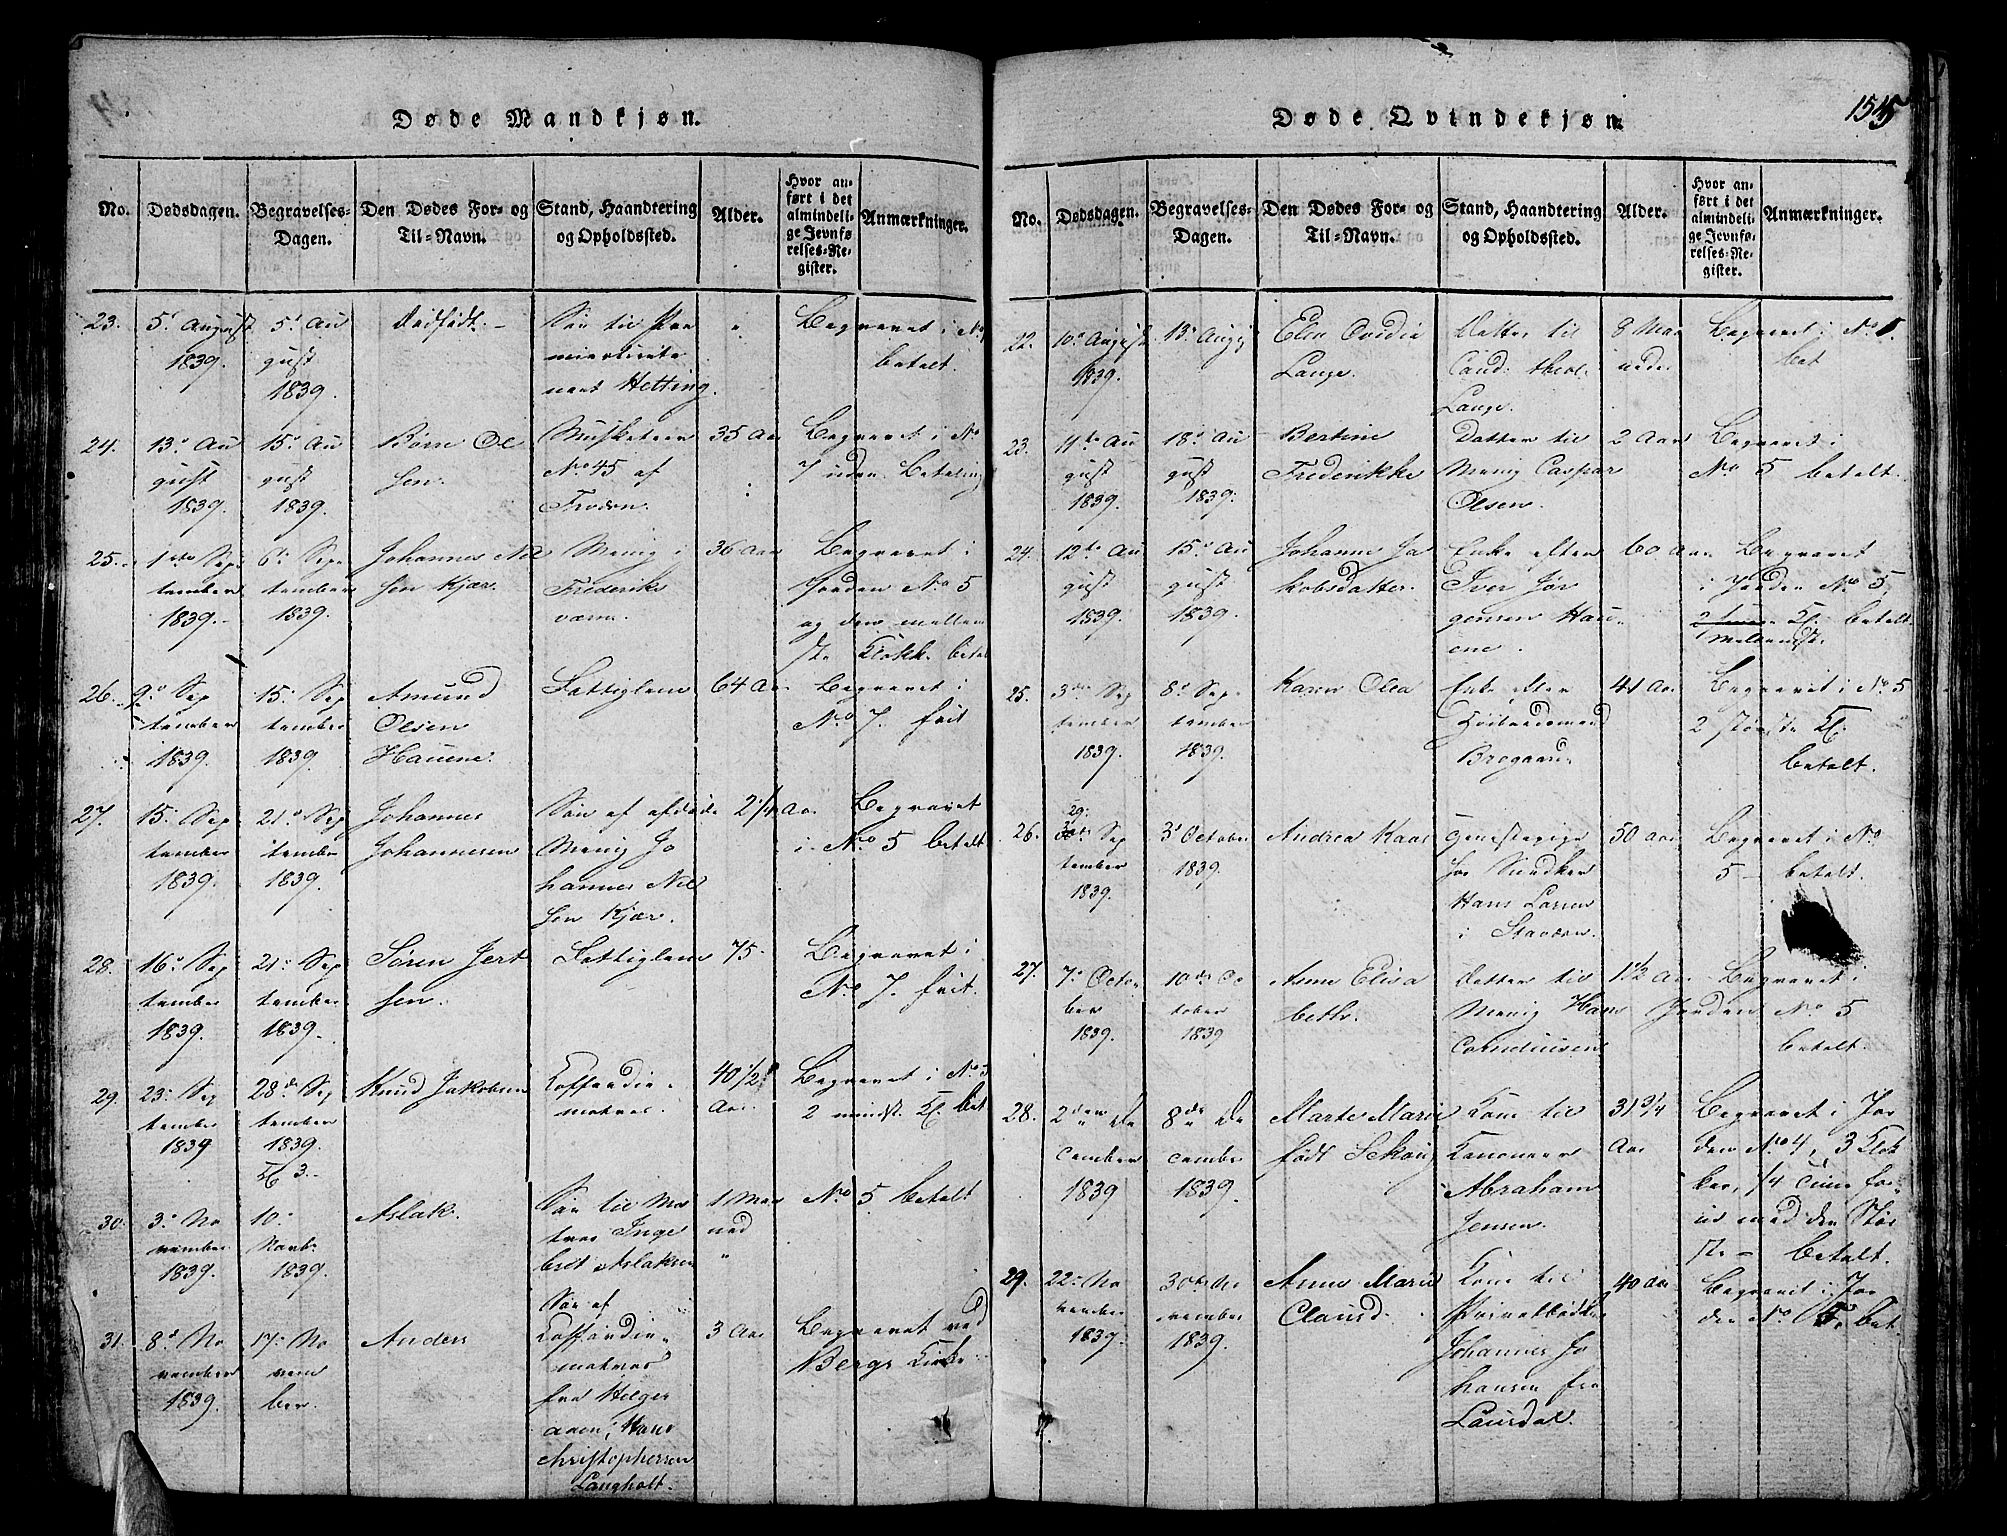 Døde Mandkjøn.
No.
Dødsdagen.
Begravelses-
Dagen.
Den Dødes For- og
Til-Navn.
Stand, Haandtering
og Opholdssted.
Alder.
Hvor an-
ført i det
almindeli-
ge Jevnfø-
relses-Re-
gister.
Anmærkninger.
23.
5t August
1839.
5t Au
gust
1839.
Dødfødt. –
Søn til Pre
mierlieute
nant Hetting.
"
Begravet i No
betalt.
24.
13de Au
gust
1839.
15de Au
gust
1839.
Børre Ol
sen.
Musketeer
No 45 af
35 Aar
Begravet i No
7 uden Betaling
25.
1ste Sep
tember
1839.
6te Sep
tember
1839.
Johannes Nil
sen Kjær.
Menig i
Frederiks
værn.
36 Aar
Begravet i
Jorden No 5
og den mellem
ste Klokk. betal
26.
9de Sep
tember
1839.
15. Sep
tember
1839.
Amund
Olsen
Hauene.
Lottiglem
64 Aar
Begravet i
No 7. frit
27.
15. Sep
tember
1839.
21de Sep
tember
1839.
Johannes
Johannesen
Søn af afdøde
Menig Jo
hannes Nil
sen Kjær.
2 1/4 Aar
Begravet
i No 5 betalt
28.
16de Sep
tember
1839.
21de Sep
tember
1839.
Søren Jert
sen.
Lottiglem
75.
Begravet i
No 7. frit.
29.
23. Sep
tember
1839
28de Sep
tember
1839.
Kl 3.
Knud Jakobsen
Coffardie-
matros.
40 1/2
Aar.
Begravet i No 5
2 mindst. Kl. bet
30.
3. No
vember
1839.
10.
Novbr
1839.
Aslak.
Søn til Ma
tros Inge
bret Aslaksen
1 Maa
ned
"
No 5 betalt
31.
8d No
vember
1839.
17. No
vem
ber.
Anders
Søn af
Coffardie-
matros
fra Helger
aaen, Hans
Christophersen
Langholt.
3 Aar
Begravet ved
Bergs Kirke
Døde Qvindekjøn.
155
No.
Dødsdagen.
Begravelses-
Dagen.
Den Dødes For- og
Til-Navn.
Stand, Haandtering
og Opholdssted.
Alder.
Hvor an-
ført i det
almindeli-
ge Jevnfø-
relses-Re-
gister.
Anmærkninger.
22.
10de August
1839.
13de Aug
Elen Ovidia
Lange.
Datter til
Cand. theol.
Lange.
8 Maa
neder
Begravet i No 5.
bet
23.
11te Au
gust
1839.
18de Au
gust
1839.
Bertine
Frederikke
Datter til
Menig Caspar
Olsen.
2 Aar
Begravet i
No 5 betalt.
24.
12te Au
gust
1839.
15de Au
gust
1839.
Johanne Ja
kobsdatter.
Enke efter
Iver Jør
gensen Hau
ene.
60 Aar
Begravet
i Jorden No 5
Kl. betalt
mellemste.
25.
3die Sep
tember
1839.
8de Sep
tember
1839.
Karen Olea
Enke efter
Bregaard
41 Aar
Begravet i No 5
2 største Kl.
betalt.
26.
29.
Sep
tember
1839.
3d October
1839.
Andrea Kaas
hos Snedker
Hans Larsen
i Stavern.
50 Aar
Begravet i No
5 – betalt.
27.
7de Octo-
ber
1839.
10de Oc
tober
1839
Anne Elisa
beth.
Datter til
Menig Hans
Corneliusen
1 1/2 Aar
Begravet i
Jorden No 5
betalt.
28.
2den De
cember
1839
8de De
cember
1839.
Marte Marie
født Skou
Kone til
Kanoneer
Abraham
Jensen.
31 3/4
Aar
Begravet i Jor
den No 4, 3 Klok
ker, 1/4 Time for
ud med den Stør
ste – Betalt.
29.
22. No
vember
1839.
30te No
vember
1839.
Anne Marie
Claus.
Kone til
Johannes Jo
hansen fra
Laurdal.
40 Aar
Begravet i Jor
den No 5. bet.